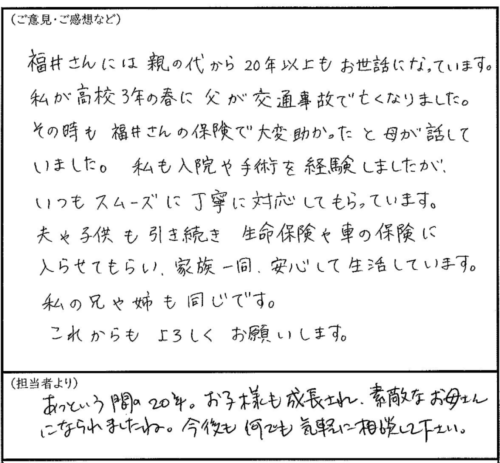 (ご意見・ご感想など)
福井さんには 親の代から 20年以上も お世話になっています。
私が高校3年の春に 父が 交通事故で亡くなりました。
その時も 福井さんの保険で大変助かった と母が話して
いました。 私も入院や手術を経験しましたが、
いつもスムーズに丁寧に対応してもらっています。
夫や子供も引き続き 生命保険や車の保険に
入らせてもらい、家族一同、安心して生活しています。
私の兄や姉も同じです。
これからも よろしく お願いします。
(担当者より)
あっという間の20年。お子様も成長され、素敵なお母さん
になられましたね。今後も何でも気軽に相談して下さい。